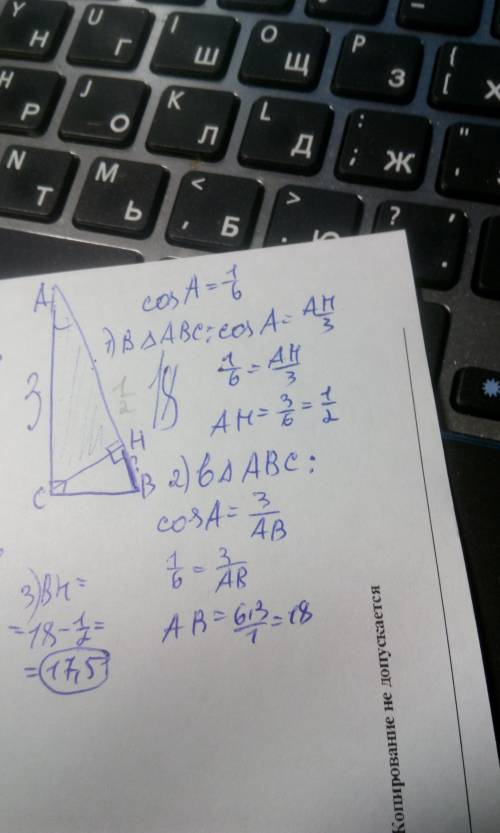 Y Н
U Г
I Ш
O Щ
P З
{ [ Х
Н Р
J О
K Л
L Д
: ; Ж
" '
N Т
M Ь
< , Б
>
? .
A
cos A = 1/6
1) В △ ABC: cos A = AH/3
3
1/2
18
1/6 = AH/3
AH = 3/6 = 1/2
H
C
B
2) в △ ABC:
cos A = 3/AB
1/6 = 3/AB
AB = 6·3/1 = 18
3) BH =
= 18 - 1/2 =
= 17,5
Копирование не допускается